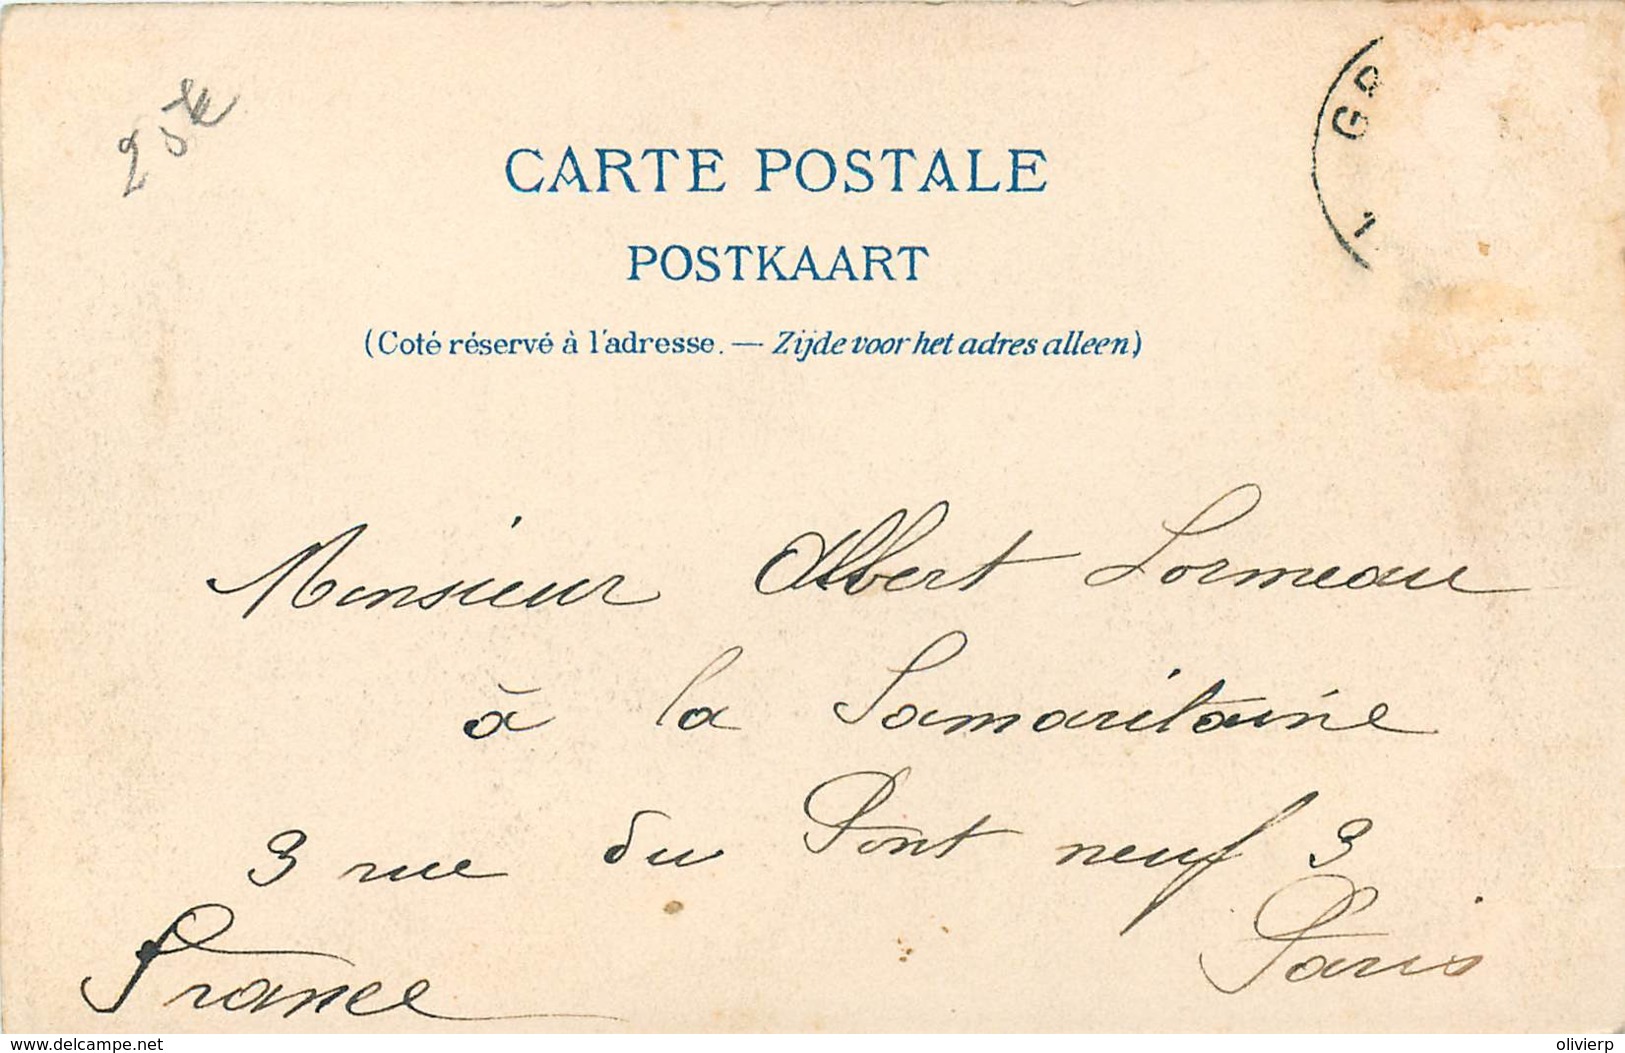 CARTE POSTALE
POSTKAART
(Coté réservé à l'adresse. — Zijde voor het adres alleen)
GR
1
Monsieur Albert Lormeau
à la Samaritaine
3 rue du Pont neuf 3
Paris
France
delcampe.net
olivierp